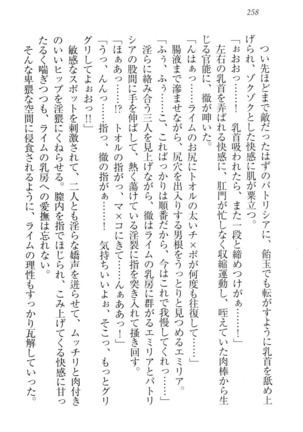 258
つい先ほどまで敵だったはずのパトリシアに、飴玉でも転がすように乳首を舐め上
げられ、ゾクゾクとした快感に肌が粟立つ。
「おおおぉ……！　乳首吸われたら、また一段と締めつけがぁ……！」
左右の乳首を弄ばれる快感に、肛門が忙しなく収縮運動し、咥えていた肉棒から生
じる官能に、徹が呻いた。
「んはぁっ……ライムのお尻にトオルの太いチ×ポが何度も往復して……！」
「だ、ダメですよ……こ、こればっかりは順番だから、今はこれで我慢してくれっ…！」
腸液まで滲ませながら、尻穴を出入りする男根をうっとりと見つめるエミリア。
淫らに絡み合う三人を見上げながら、徹はライムの乳房に群がるエミリアとパトリ
シアの股間に手を伸ばして、熱く蕩けている淫裂に指を突き入れて掻き回す。
「ほぁあっ……!?　トオルの指が、マ×コにきて……んぁああっ…！」
「うっ、んんっ……！　指っ、徹の指がぁ……！　気持ちいいよぉ、そこっ、もっとグリ
グリしてよぉおっ!!」
敏感なスポットを刺激されて、二人とも淫らな嬌声を迸らせながら、ムッチリと肉付き
のいいヒップを淫靡にくねらせる。膣内を指でほじられ、こみ上げてくる快感に甘っ
たるく喘ぎつつも、ライムの乳房への愛撫は忘れない。
そんな卑猥な空間に侵食されるように、ライムの理性もすっかり瓦解していった。